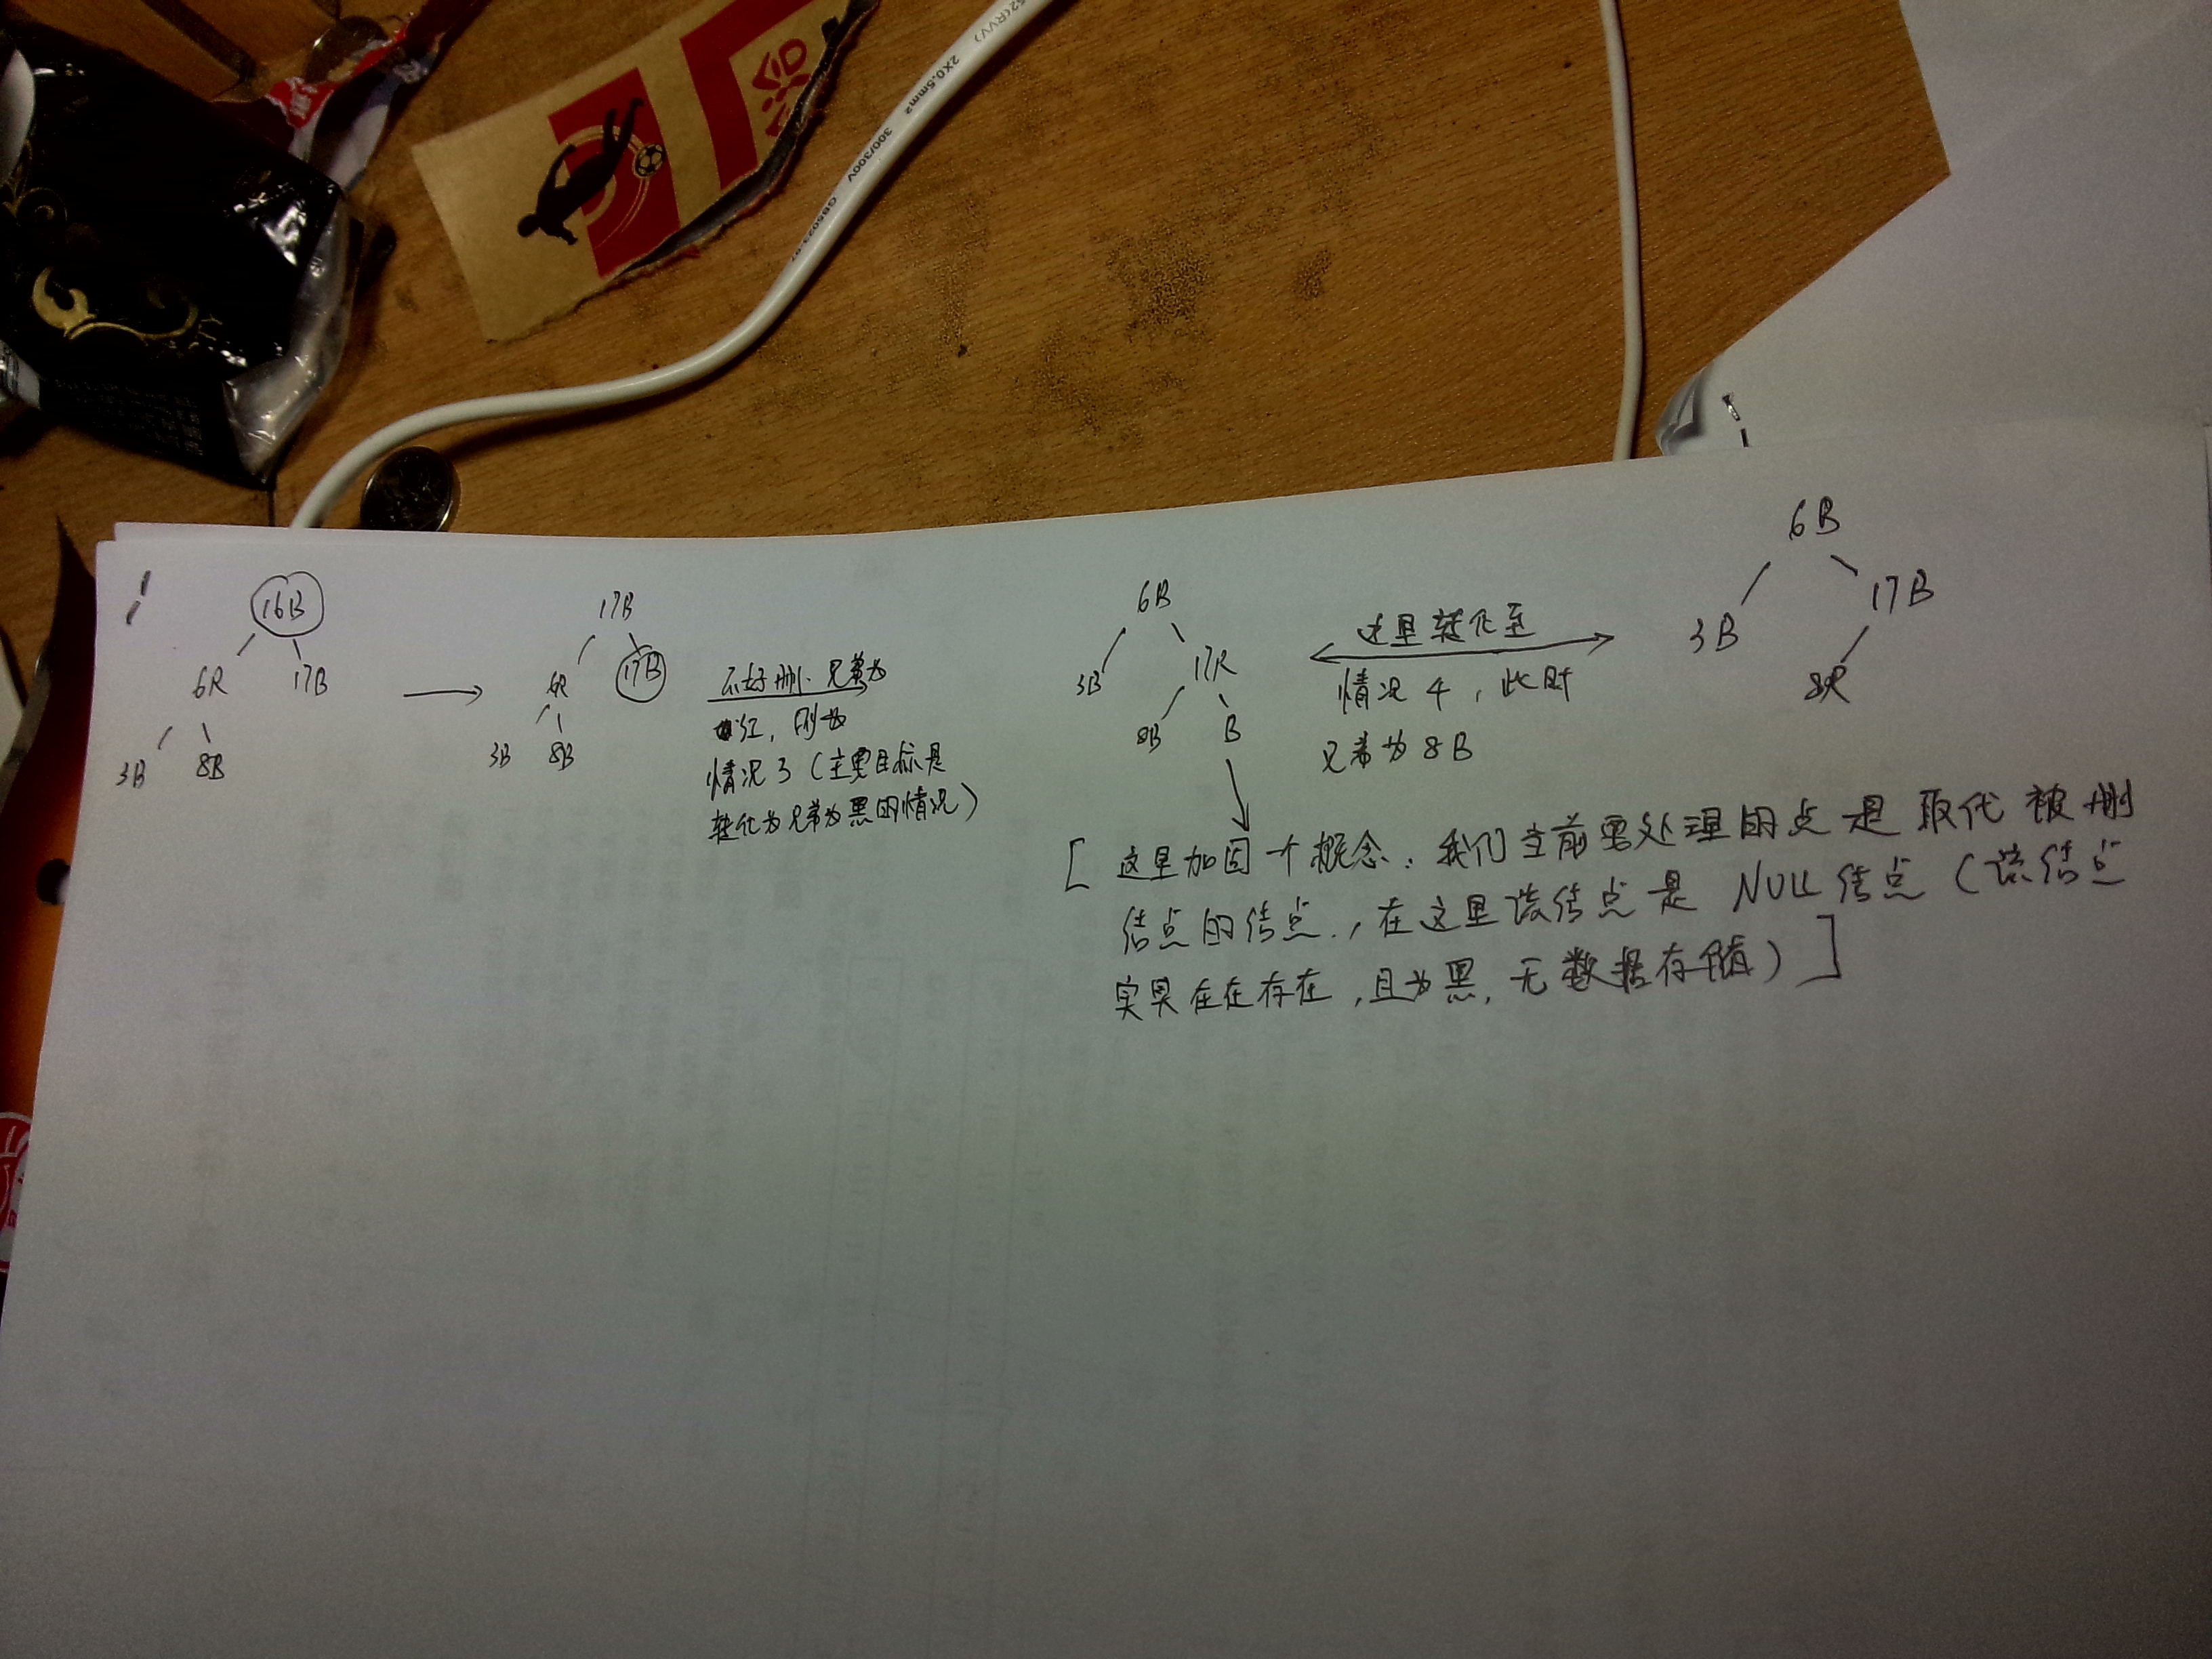 2X0.5mm² 300/300V GB5023
16B
6R 17B
3B 8B
17B
6R 17B
3B 8B
不好删.兄弟为
红,则为
情况3(主要目标是
转化为兄弟为黑的情况)
6B
3B 17R
8B B
这里转化至
情况4,此时
兄弟为8B
6B
3B 17B
8R
[这里加固一个概念:我们当前要处理的点是取代被删
结点的结点.,在这里该结点是NULL结点(该结点
实实在在存在,且为黑,无数据存储)]